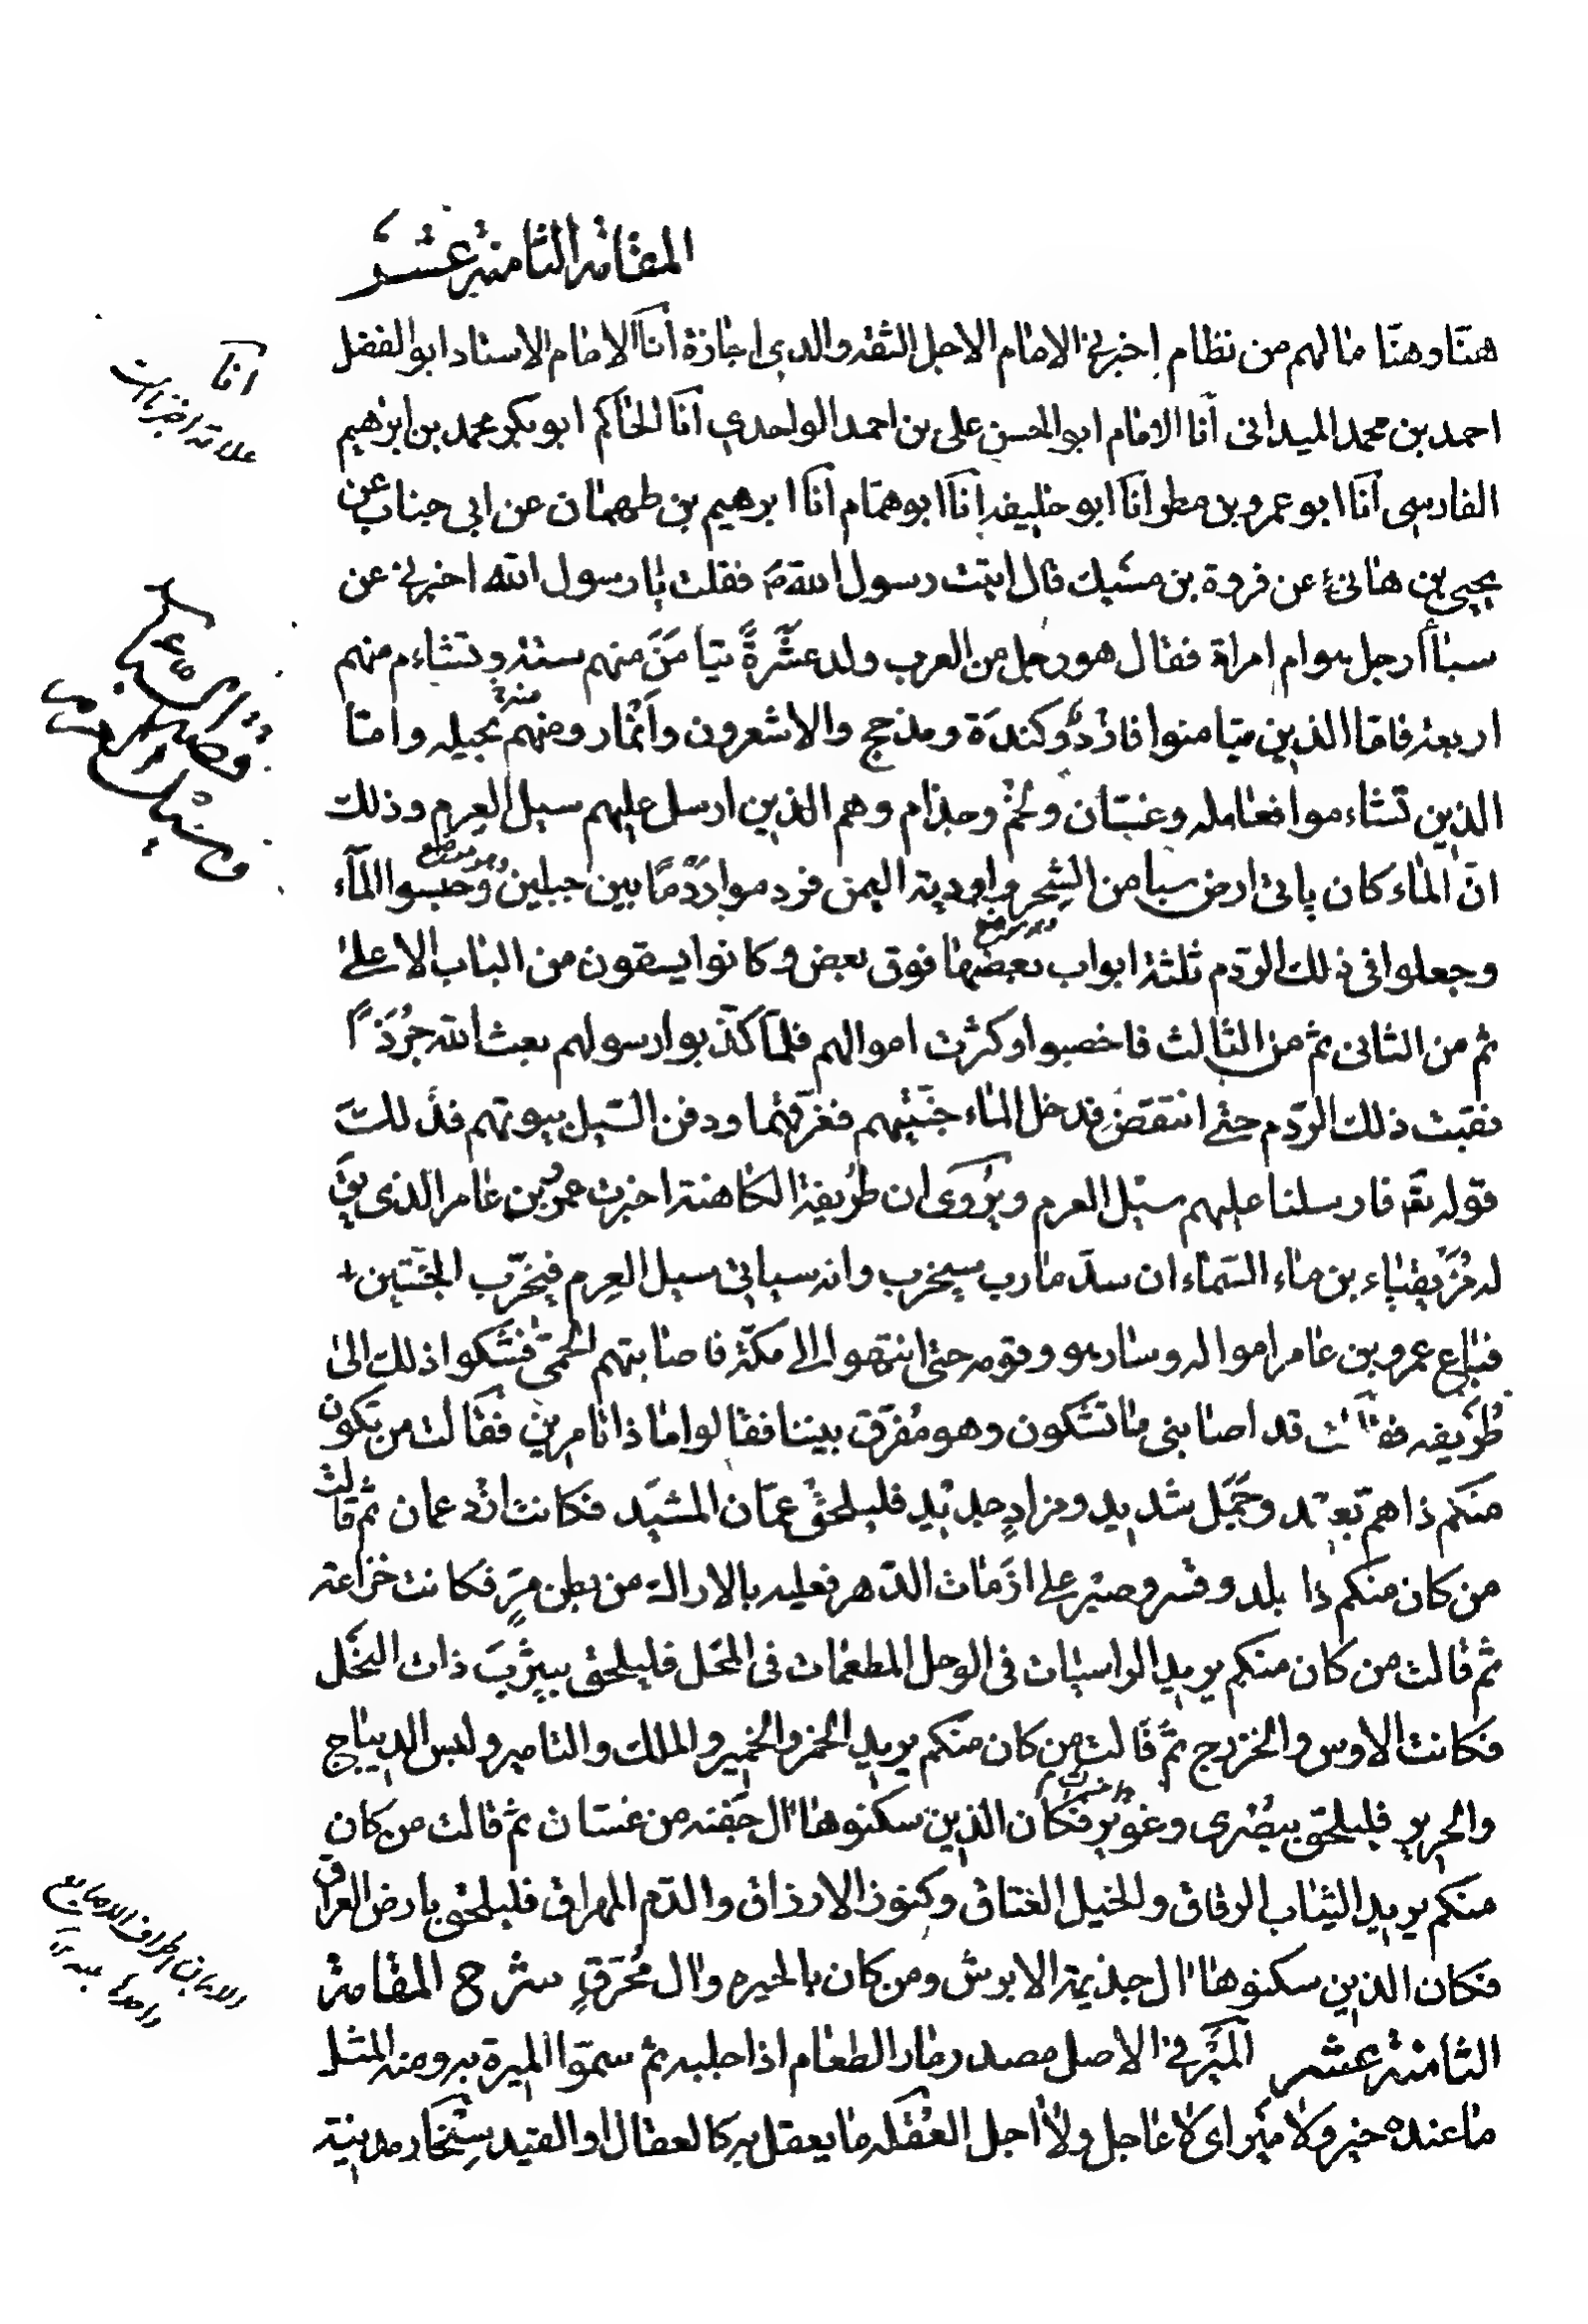 المقامة الثامنة عشر
هنّا وهنّا مالهم من نظام اخبرني الامام الاجل الثقة والدي اجازة انا الامام الاستاد ابو الفضل
احمد بن محمد الميداني انا الامام ابو الحسن علي بن احمد الواحدي انا الحاكم ابو بكر محمد بن ابرهيم
الفارسي انا ابو عمرو بن مطر انا ابو خليفه انا ابو همام انا ابرهيم بن طهمان عن ابي جناب عن
يحيي بن هانئ عن فروة بن مسيك قال اتيت رسول الله ص فقلت يا رسول الله اخبرني عن
سبأ أرجل هو ام امراة فقال هو رجل من العرب ولد عشرةً تيامَنَ منهم ستة وتشاءم منهم
اربعة فاما الذين تيامنوا فازد وكندة ومذحج والاشعرون وانمار ومنهم بجيله وامّا
الذين تشاءموا فعامله وغسّان ولخم وجذام وهم الذين ارسل عليهم سيل العرم وذلك
انّ الماء كان ياتي ارض سبا من الشحر واودية اليمن فردموا ردمًا بين جبلين وحبسوا المآء
وجعلوا في ذلك الردم ثلثة ابواب بعضها فوق بعض وكانوا يسقون من الباب الاعلى
ثم من الثاني ثم من الثالث فاخصبوا وكثرت اموالهم فلمّا كذّبوا رسولهم بعث الله جُرَذًا
فنقبت ذلك الردم حتى انتقض فدخل الماء جنّتيهم فغرّقهما ودفن السّيل بيوتهم فذلك
قوله تعَ فارسلنا عليهم سيل العرم ويُروى ان طريفة الكاهنة اخبرت عمرو بن عامر الذي يق
له مُزَيقياء بن ماء السّماء ان سدّ مارب سيخرب وانه سياتي سيل العرم فيخرّب الجنّتين
فباع عمرو بن عامر امواله وسار هو وقومه حتى انتهوا الى مكّة فاصابتهم الحُمّى فشكوا ذلك الى
طريفه فقالت قد اصابني ما تشكون وهو مُفرّق بيننا فقالوا ماذا تامرين فقالت من يكون
منكم ذا همّ بعيد وجمل شديد ومزادٍ جديد فليلحق عمّان المشيّد فكانت ازد عمان ثم قالت
من كان منكم ذا بلد وصبر على ازمات الدّهر فعليه بالاراك من بطن مرّ فكانت خزاعة
ثم قالت من كان منكم يريد الراسيات في الوحل المطعمات في المحل فليلحق بيثربَ ذات النخل
فكانت الاوس والخزرج ثم قالت من كان منكم يريد الخمر والخمير والملك والتامير ولبس الديباج
والحرير فليلحق ببُصرى وغوير فكان الذين سكنوها ال جفنة من غسّان ثم قالت من كان
منكم يريد الثياب الرقاق والخيل العتاق وكنوز الارزاق والدّم المهراق فليلحق بارض العراق
فكان الذين سكنوها ال جذيمة الابرش ومن كان بالحيره وال مُحَرّقٍ شرح المقامة
الثامنة عشر المَيْرُ في الاصل مصدر مار الطعام اذا جلبه ثم سمّوا الميرة به ومنه المثل
ما عنده خير ولا مير اي لا عاجل ولا اجل العُقْله ما يعقل به كالعقال او القيد سِنجار مدينة
انا
علامة اخبرنا